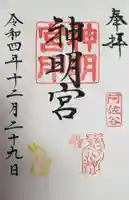 奉拝
阿佐谷
神明宮
神明
宮
令和四年十二月二十九日